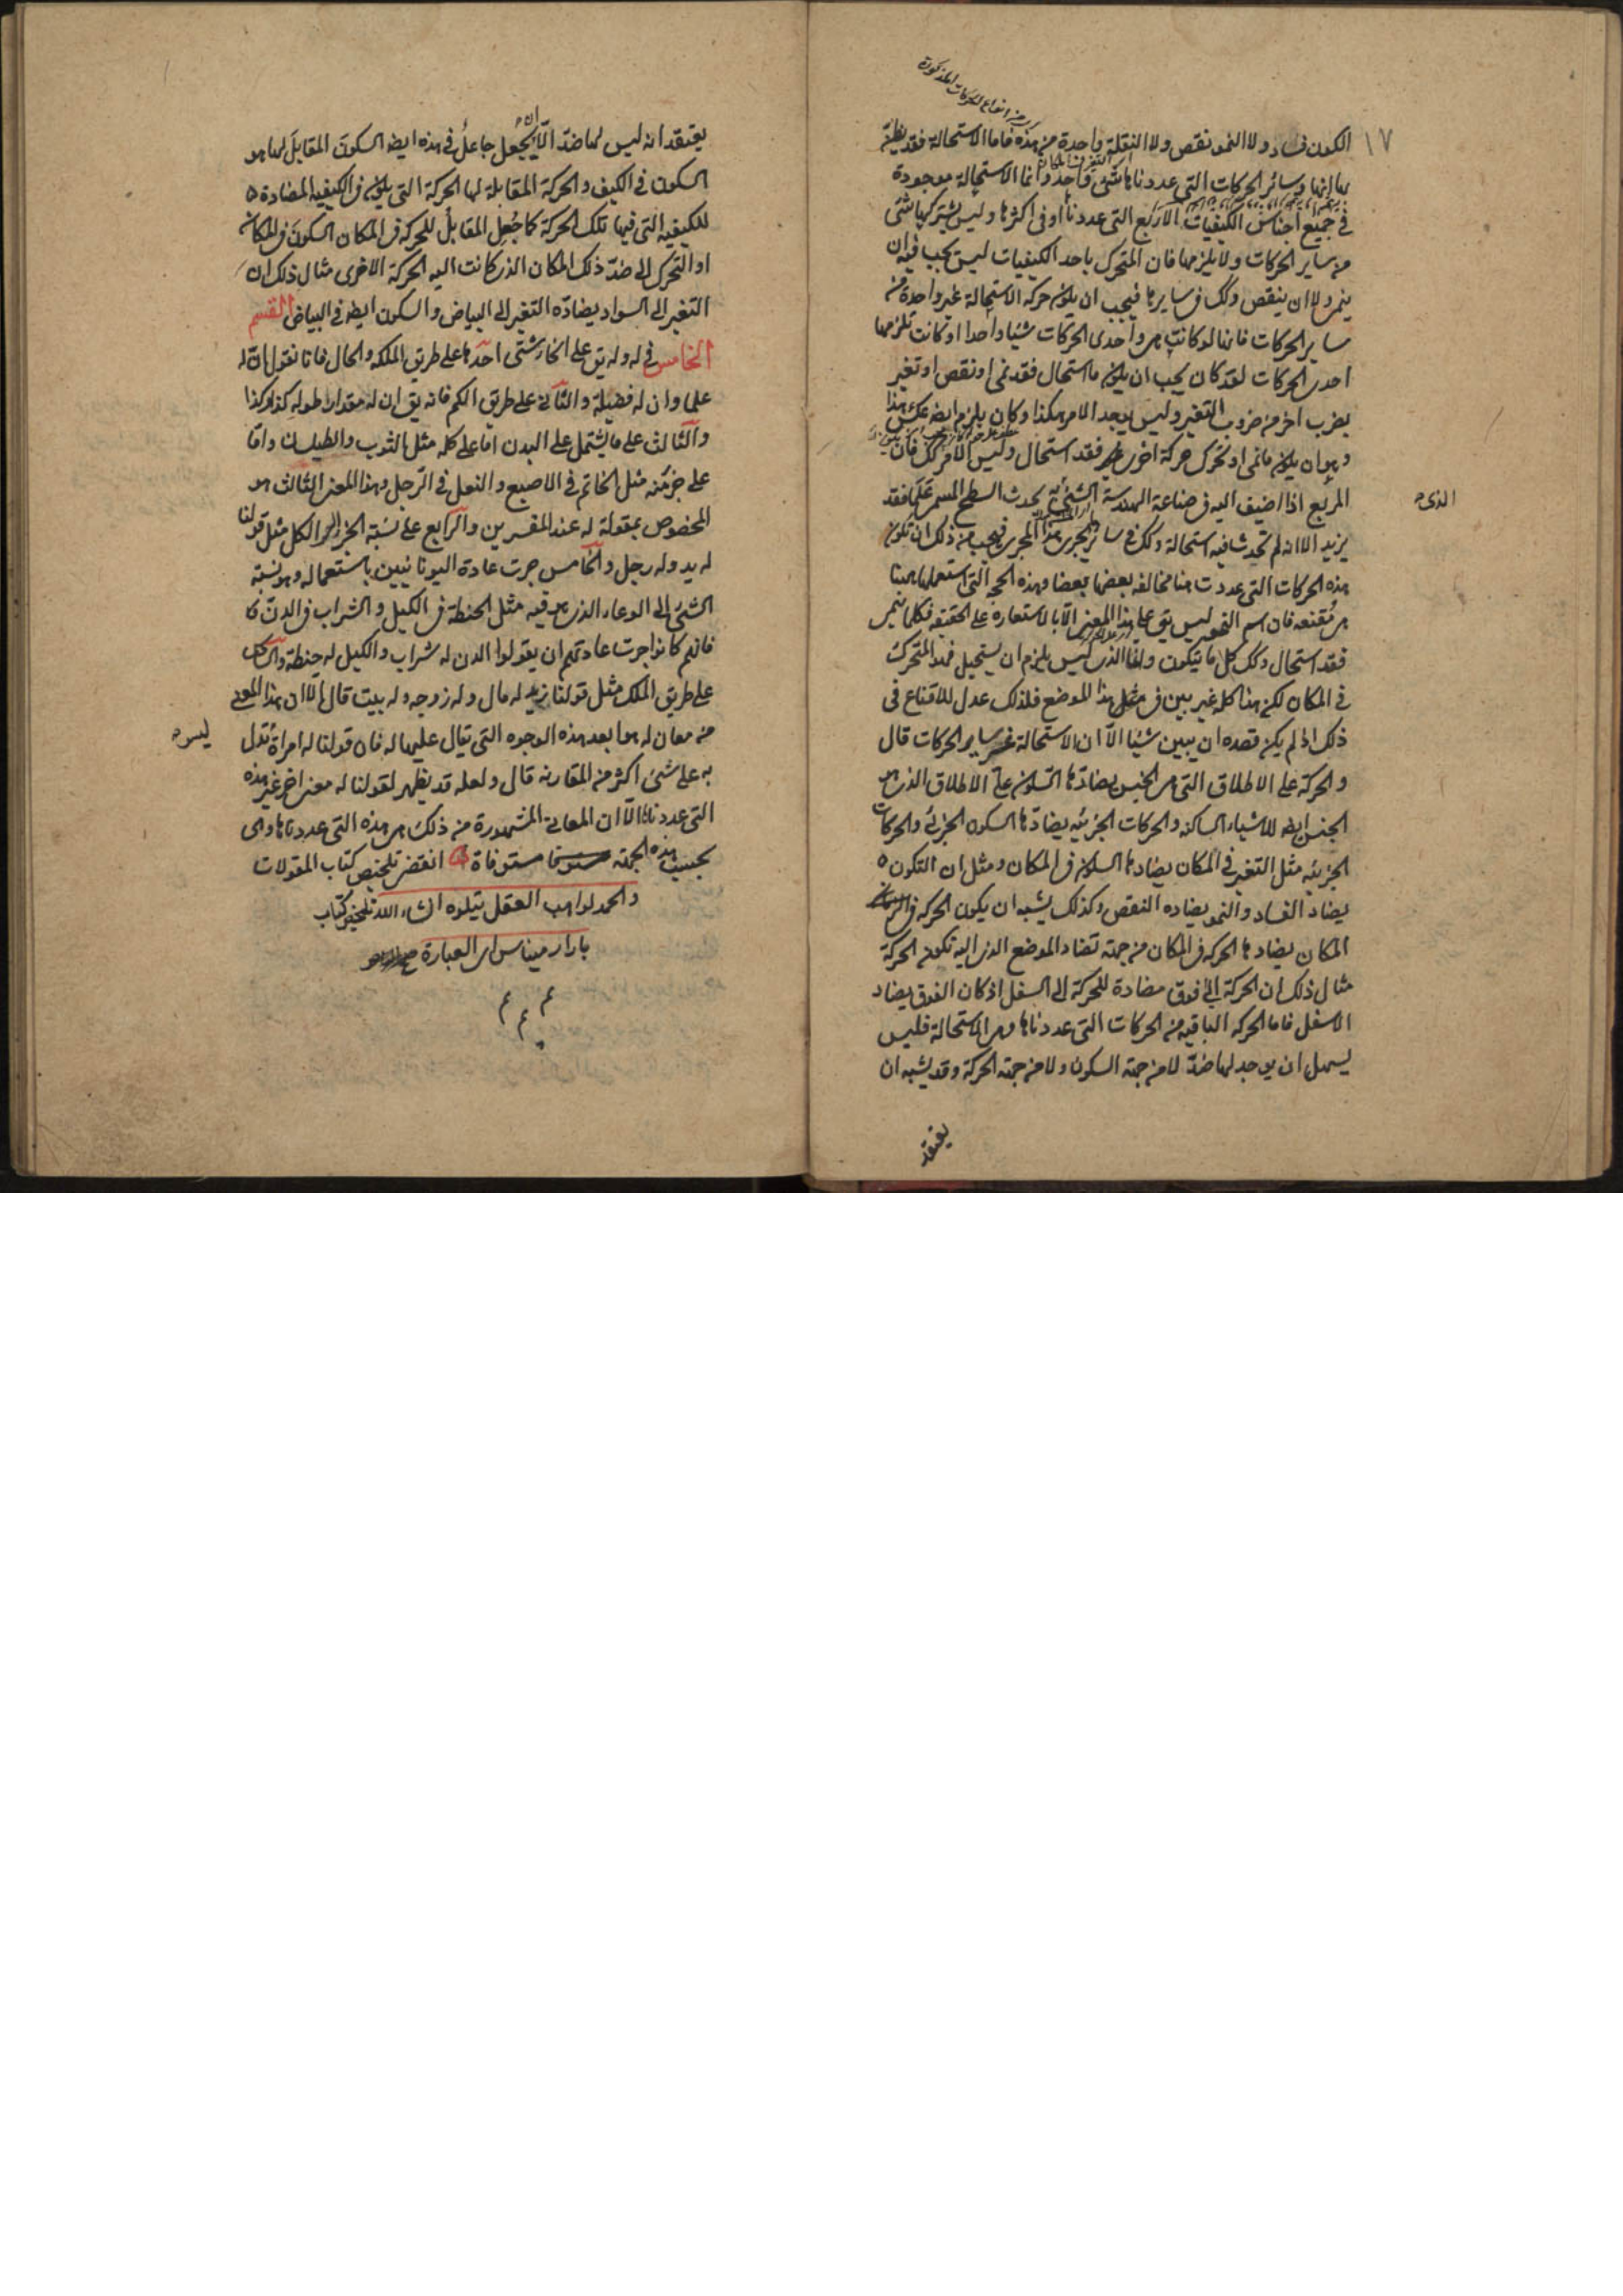 ١٧
الكون فساد ولا النمو نقص ولا النقلة واحدة من هذه فاما الاستحالة فقد يظن
بها انها وسائر الحركات التى عددناها شئ واحد وانما الاستحالة موجودة
فى جميع اجناس الكيفيات الاربع التى عددناها او فى اكثرها وليس يشركها شئ
من ساير الحركات ولا يلزمها فان المتحرك باحد الكيفيات ليس يجب فيه ان
ينمى ولا ان ينقص وكك فى سايرها فيجب ان يكون حركة الاستحالة غير واحدة من
ساير الحركات فانها لو كانت هى واحدى الحركات شيئا واحدا او كانت تلزمها
احدى الحركات لقد كان يجب ان يكون ما استحال فقد نمى او نقص او تغير
بضرب اخر من ضروب التغير وليس يوجد الامر هكذا وكان يلزم ايضا عكس هذا
وهو ان يكون ما نمى او تحرك حركة اخرى فقد استحال وليس الامر كك فان
المربع اذا اضيف اليه فى صناعة الهندسة الشئ يحدث السطح المسمى علما فقد
الذى
يزيد الا انه لم تحدث فيه استحالة وكك فى ساير ما يجرى هذا المجرى فيجب من ذلك ان تكون
هذه الحركات التى عددت هنا مخالفة بعضها بعضا وهذه الحجة التى استعملها هنا
هى مقنعة فان اسم النمو ليس يق على هذا المعنى الا بالاستعارة على الحقيقة فكلما ينمى
فقد استحال وكك كل ما يتكون وانما الذى ليس يلزم ان يستحيل فهو المتحرك
فى المكان لكن هذا كله غير بين فى مثل هذا الموضع فلذلك عدل للاقناع فى
ذلك اذ لم يكن قصده ان يبين شيئا الا ان الاستحالة غير ساير الحركات قال
والحركة على الاطلاق التى هى الجنس يضادها السكون على الاطلاق الذى هو
الجنس ايضا للاشياء الساكنة والحركات الجزئيه يضادها السكون الجزئى والحركات
الجزئيه مثل التغير فى المكان يضادها السكون فى المكان ومثل ان التكون
يضاد الفساد والنمو يضاده النقص وكذلك يشبه ان يكون الحركه فى
المكان يضادها الحركه فى المكان من جهة تضاد الموضع الذى اليه تكون الحركة
مثال ذلك ان الحركة الى فوق مضادة للحركة الى السفل اذ كان الفوق يضاد
الاسفل فاما الحركه الباقيه من الحركات التى عددناها وهى الاستحالة فليس
يسهل ان يوجد لها ضد لا من جهة السكون ولا من جهة الحركة وقد يشبه ان
يعتقد
يعتقد انه ليس لها ضد الا ان يجعل جاعل فى هذه ايضا السكون المقابل لها هو
السكون فى الكيف والحركة المقابلة لها الحركة التى يكون فى الكيفيه المضادة
للكيفيه التى فيها تلك الحركة كما جعل المقابل للحركه فى المكان السكون فى المكان
او التحرك الى ضد ذلك المكان الذى كانت اليه الحركة الاخرى مثال ذلك ان
التغير الى السواد يضاده التغير الى البياض والسكون ايضا فى البياض القسم
الخامس فى له وله يق على انحاء شتى احدها على طريق الملكه والحال فانا نقول ان له
علما وان له فضيلة والثانى على طريق الكم فانه يق ان له مقدارا طوله كذا وكذا
والثالث على ما يشتمل على البدن اما على كله مثل الثوب والطيلسان واما
على جزء منه مثل الخاتم فى الاصبع والنعل فى الرجل وهذا المعنى الثالث هو
المخصوص بمقولة له عند المفسرين والرابع على نسبة الجزء الى الكل مثل قولنا
له يد وله رجل والخامس جرت عادة اليونانيين باستعماله وهو نسبة
الشئ الى الوعاء الذى هو فيه مثل الحنطة فى الكيل والشراب فى الدن
فانهم كانوا جرت عادتهم ان يقولوا الدن له شراب والكيل له حنطة والسادس
على طريق الملك مثل قولنا زيد له مال وله زوجه وله بيت قال الا ان هذا المعنى
من معان له هو ابعد هذه الوجوه التى تقال عليها له فان قولنا له امراة تدل
ليس
به على شئ اكثر من المقارنه قال ولعله قد يظهر لقولنا له معنى اخر غير هذه
التى عددناها الا ان المعانى المشهورة من ذلك هى هذه التى عددناها وهى
بحسب هذه الجهة مستوفاة انقضى تلخيص كتاب المقولات
والحمد لواهب العقل يتلوه انشاء الله تلخيص كتاب
بارارميناس اى العبارة